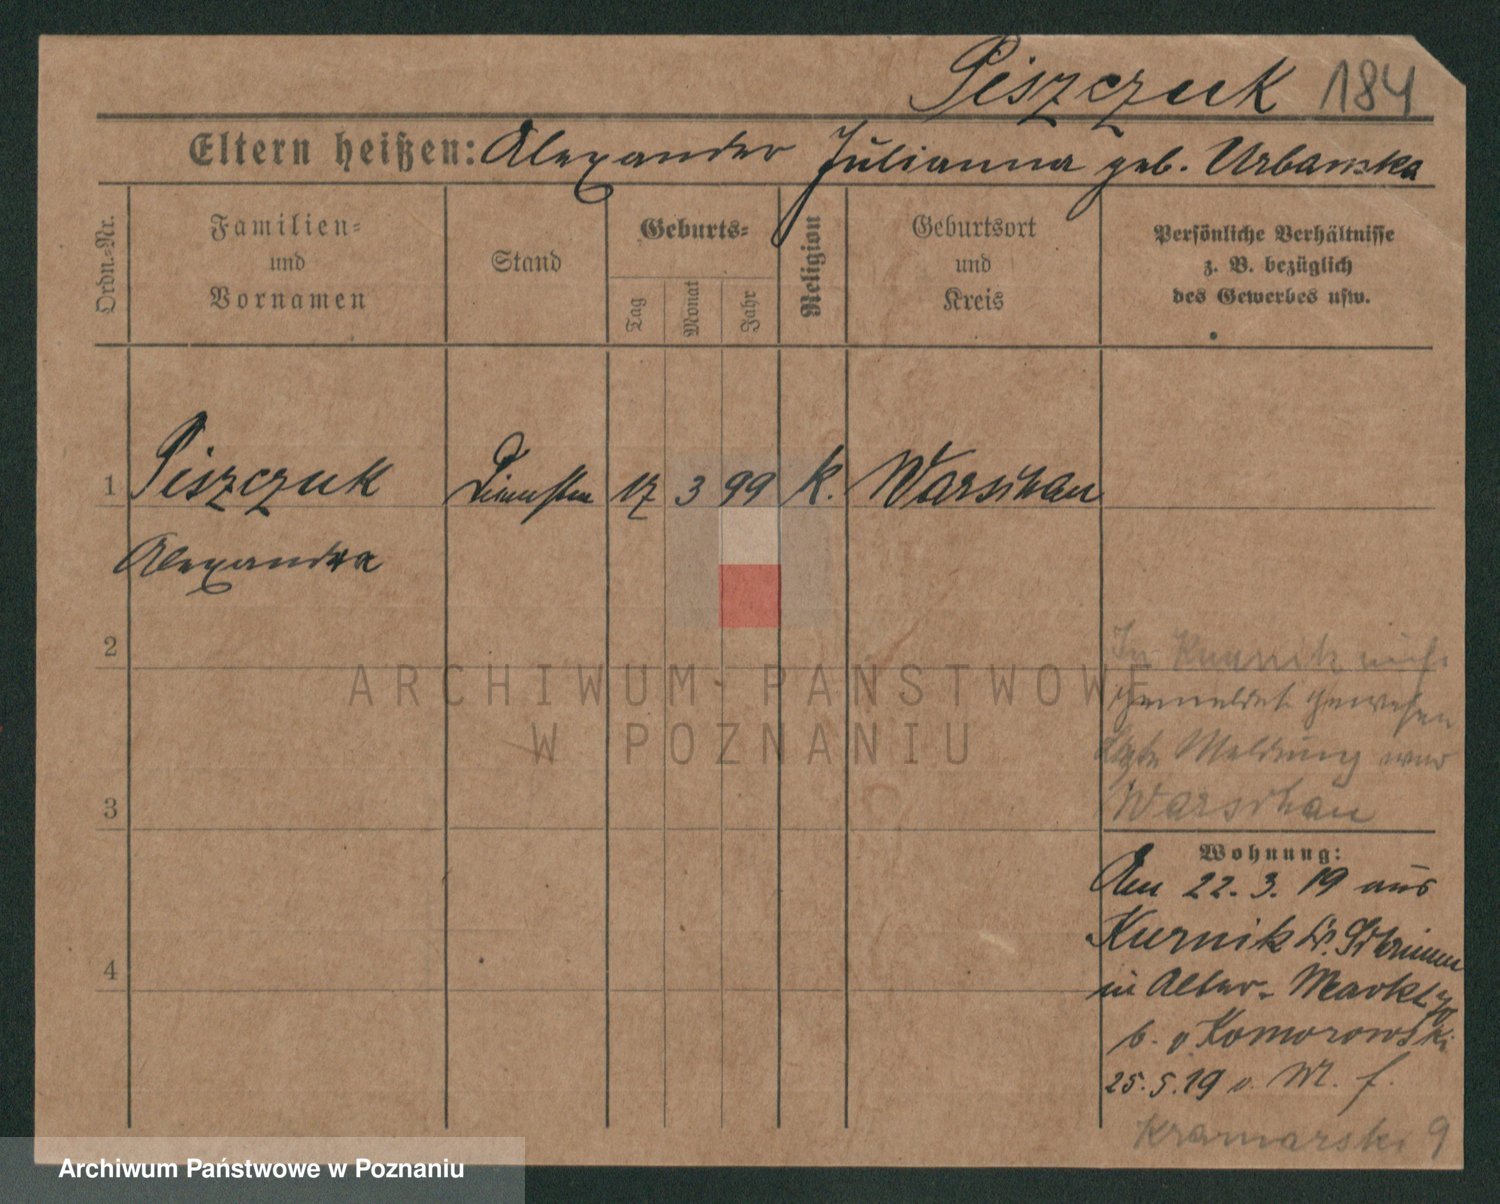 Piszczuk 184
Eltern heißen: Alexander Julianna geb. Urbanska
Ordn.-Nr.
Familien-
und
Vornamen
Stand
Geburts-
Tag
Monat
Jahr
Religion
Geburtsort
und
Kreis
Persönliche Verhältnisse
z. B. bezüglich
des Gewerbes usw.
1 Piszczuk 17 3 99 k. Warschau
Alexandra
2
In Kurnik nicht
gemeldet gewesen
Meldung war
Warschau
3
Wohnung:
Am 22. 3. 19 aus
Kurnik Kr. Schrimm
in Alter-Markt
b. v Komorowski
25. 5. 19 v. M. f.
Kramarski 9
4
ARCHIWUM PAŃSTWOWE
W POZNANIU
Archiwum Państwowe w Poznaniu